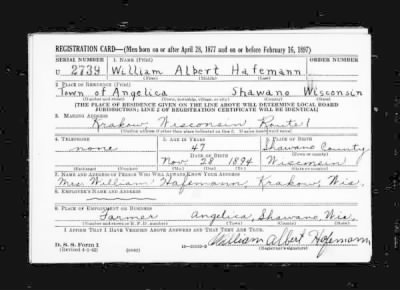 REGISTRATION CARD—(Men born on or after April 28, 1877 and on or before February 16, 1897)
SERIAL NUMBER 1. NAME (Print) ORDER NUMBER
U 2739 William Albert Hafemann
(First) (Middle) (Last)
2. PLACE OF RESIDENCE (Print)
Town of Angelica Shawano Wisconsin
(Number and street) (Town, township, village, or city) (County) (State)
[THE PLACE OF RESIDENCE GIVEN ON THE LINE ABOVE WILL DETERMINE LOCAL BOARD
JURISDICTION; LINE 2 OF REGISTRATION CERTIFICATE WILL BE IDENTICAL]
3. MAILING ADDRESS
Krakow Wisconsin Route 1
[Mailing address if other than place indicated on line 2. If same insert word same]
4. TELEPHONE 5. AGE IN YEARS 6. PLACE OF BIRTH
none 47 Shawano County
DATE OF BIRTH (Town or county)
Nov 28 1894 Wisconsin
(Exchange) (Number) (Mo.) (Day) (Yr.) (State or country)
7. NAME AND ADDRESS OF PERSON WHO WILL ALWAYS KNOW YOUR ADDRESS
Mrs William Hafemann, Krakow, Wis.
8. EMPLOYER'S NAME AND ADDRESS
9. PLACE OF EMPLOYMENT OR BUSINESS
Farmer Angelica, Shawano, Wis.
(Number and street or R. F. D. number) (Town) (County) (State)
I AFFIRM THAT I HAVE VERIFIED ABOVE ANSWERS AND THAT THEY ARE TRUE.
D. S. S. Form 1 William Albert Hafemann
(Revised 4-1-42) (over) (Registrant's signature)